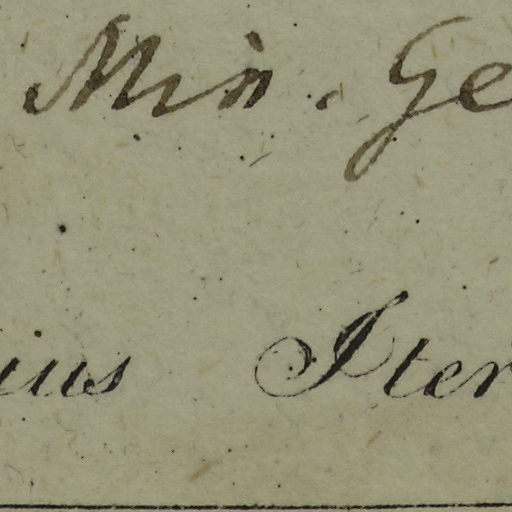 Min. Ge
ius Iter